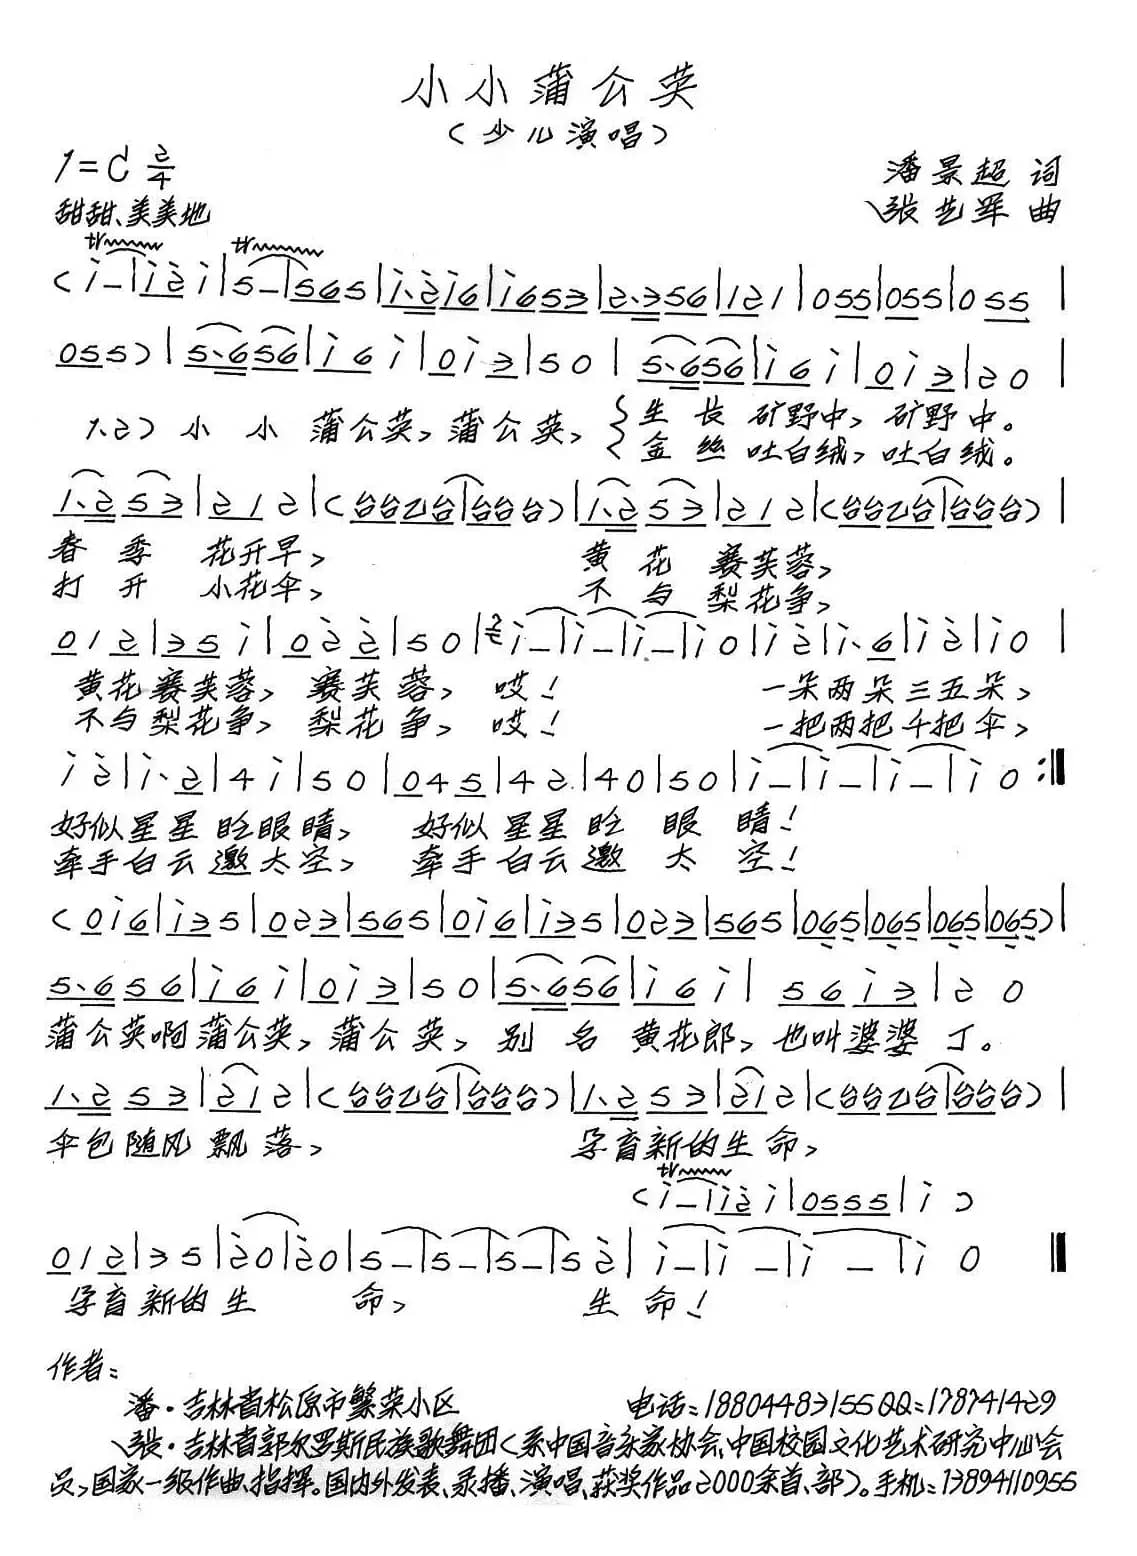 小小蒲公英
(少儿演唱)
1=C 2/4
潘景超 词
甜甜、美美地
张艺军 曲
tr tr
(i - | i 2 i | 5 - | 5 6 5 | i. 2 i 6 | i 6 5 3 | 2. 3 5 6 | 1 2 1 | 0 5 5 | 0 5 5 | 0 5 5 |
0 5 5) | 5. 6 5 6 | i 6 i | 0 i 3 | 5 0 | 5. 6 5 6 | i 6 i | 0 i 3 | 2 0 |
1.2) 小 小 蒲公英, 蒲公英, 生 长 矿野中, 矿野中。
金 丝 吐白绒, 吐白绒。
1. 2 5 3 | 2 1 2 | (台台乙台 | 台台台) | 1. 2 5 3 | 2 1 2 | (台台乙台 | 台台台) |
春 季 花开早, 黄 花 赛芙蓉,
打 开 小花伞, 不 与 梨花争,
0 1 2 | 3 5 i | 0 2 2 | 5 0 | 2/4 i - | i - | i - | i 0 | i 2 | i. 6 | i 2 | i 0 |
黄花赛芙蓉, 赛芙蓉, 哎! 一朵两朵三五朵,
不与梨花争, 梨花争, 哎! 一把两把千把伞,
i 2 | i. 2 | 4 i | 5 0 | 0 4 5 | 4 2 | 4 0 | 5 0 | i - | i - | i - | i 0 :|
好似星星眨眼睛, 好似星星眨 眼 睛!
牵手白云邀太空, 牵手白云邀 太 空!
(0 i 6 | i 3 5 | 0 2 3 | 5 6 5 | 0 i 6 | i 3 5 | 0 2 3 | 5 6 5 | 0 6 5 | 0 6 5 | 0 6 5 | 0 6 5) |
5. 6 5 6 | i 6 i | 0 i 3 | 5 0 | 5. 6 5 6 | i 6 i | 5 6 i 3 | 2 0
蒲公英啊蒲公英, 蒲公英, 别 名 黄花郎, 也叫婆婆丁。
1. 2 5 3 | 2 1 2 | (台台乙台 | 台台台) | 1. 2 5 3 | 2 1 2 | (台台乙台 | 台台台) |
伞包随风飘落, 孕育新的生命,
tr
(i - | i 2 i | 0 5 5 5 | i )
0 1 2 | 3 5 | 2 0 | 2 0 | 5 - | 5 - | 5 - | 5 2 | i - | i - | i - | i 0 ‖
孕育新的生 命, 生 命!
作者:
潘·吉林省松原市繁荣小区 电话:18804483155QQ:178741429
张·吉林省郭尔罗斯民族歌舞团(系中国音乐家协会、中国校园文化艺术研究中心会
员,国家一级作曲、指挥。国内外发表、录播、演唱、获奖作品2000余首、部)。手机:13894110955